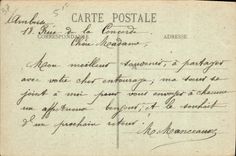 Ambois
CARTE POSTALE
17, Rue de la Concorde
CORRESPONDANCE ADRESSE
Chère Madame,
Mon meilleur souvenir, à partager
avec votre cher entourage, ma sœur se
joint à moi pour vous envoyer à chacune
un affectueux bonjour, et le souhait
d'un prochain retour!
M. Manceau